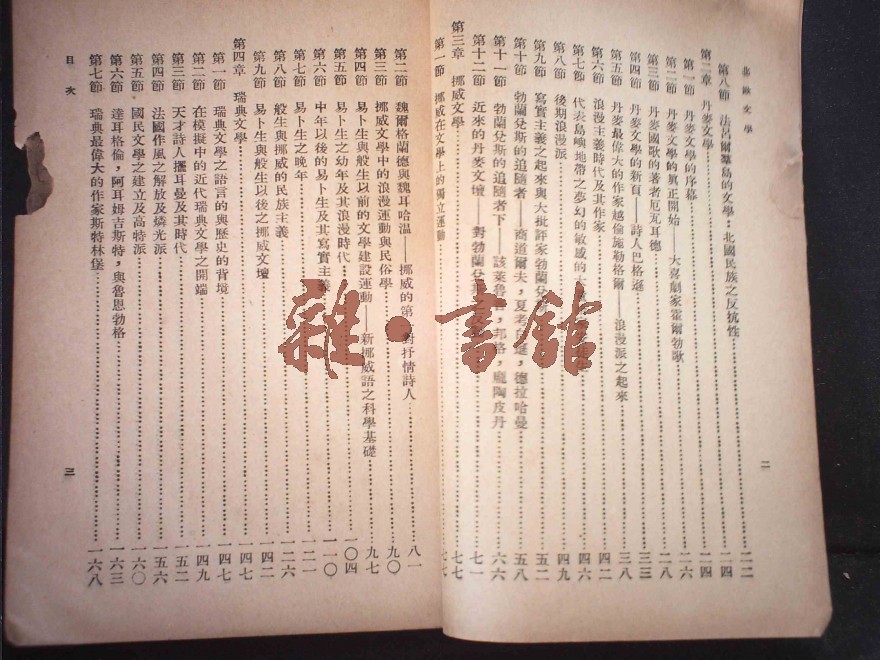 北歐文學
第八節 法呂爾羣島的文學:北國民族之反抗性……二二
第二章 丹麥文學……二四
第一節 丹麥文學的序幕……二四
第二節 丹麥文學的眞正開始——大喜劇家霍爾勃歌……二六
第三節 丹麥國歌的著者厄瓦耳德……二八
第四節 丹麥文學的新頁——詩人巴格遜……三三
第五節 丹麥最偉大的作家越倫施勒格爾——浪漫派之起來……三八
第六節 浪漫主義時代及其作家……四二
第七節 代表島嶼地帶之夢幻的敏感的大
第八節 後期浪漫派……四九
第九節 寫實主義之起來與大批評家勃蘭兌……五二
第十節 勃蘭兌斯的追隨者——商道爾夫,夏,德拉哈曼……五八
第十一節 勃蘭兌斯的追隨者下——該萊魯普,邦格,龐陶皮丹……六六
第十二節 近來的丹麥文壇——對勃蘭兌斯……七一
第三章 挪威文學……七七
第一節 挪威在文學上的獨立運動……七七
二
第二節 魏爾格蘭德與魏耳哈溫——挪威的第一對抒情詩人……八一
第三節 挪威文學中的浪漫運動與民俗學……九〇
第四節 易卜生與般生以前的文學建設運動——新挪威語之科學基礎……九七
第五節 易卜生之幼年及其浪漫時代……一〇四
第六節 中年以後的易卜生及其寫實主義……一一〇
第七節 易卜生之晚年……一二一
第八節 般生與挪威的民族主義……一二六
第九節 易卜生與般生以後之挪威文壇……一四二
第四章 瑞典文學……一四七
第一節 瑞典文學之語言的與歷史的背境……一四七
第二節 在模擬中的近代瑞典文學之開端……一四九
第三節 天才詩人擺耳曼及其時代……一五二
第四節 法國作風之解放及燐光派……一五六
第五節 國民文學之建立及高特派……一六〇
第六節 達耳格倫,阿耳姆吉斯特,與魯恩勃格……一六三
第七節 瑞典最偉大的作家斯特林堡……一六八
目次
三
雜·書館